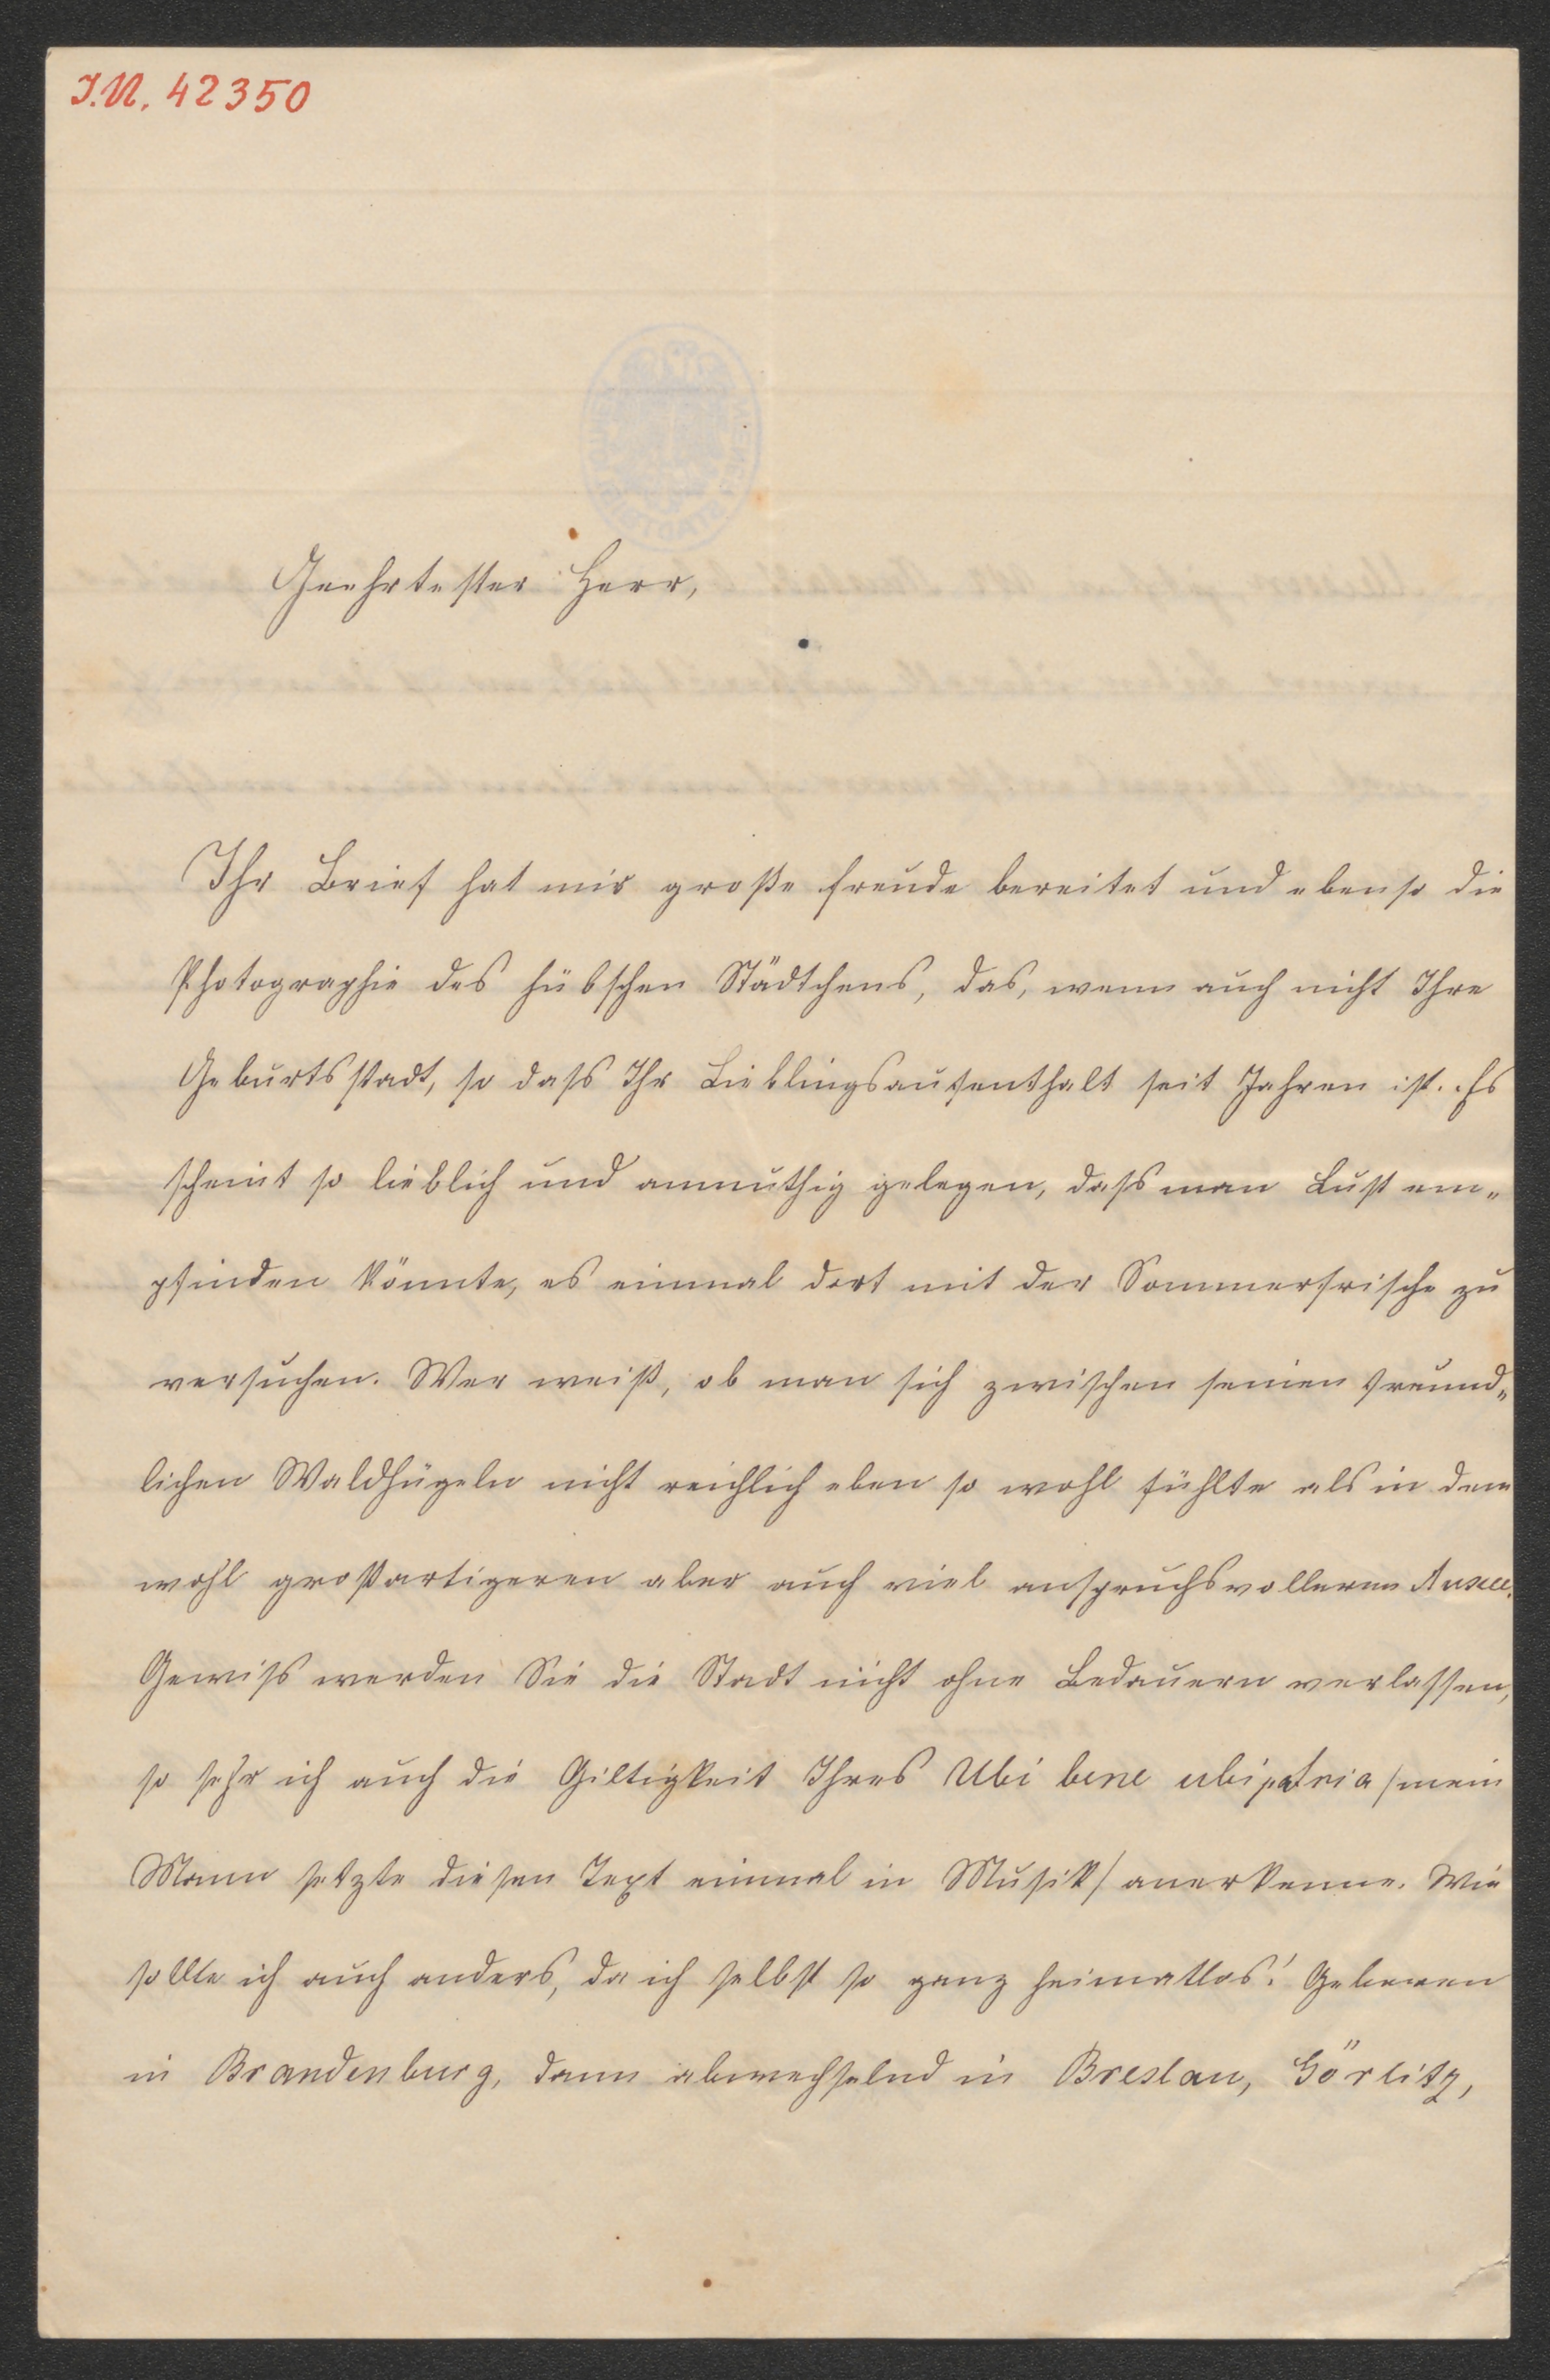 I.N. 42350
Geehrtester Herr,
Ihr Brief hat mir große Freude bereitet und ebenso die
Photographie des hübschen Städtchens, das, wenn auch nicht Ihre
Geburtsstadt, so dass Ihr Lieblingsaufenthalt seit Jahren ist. Es
scheint so lieblich und anmuthig gelegen, dass man Lust em„
pfinden könnte, es einmal dort mit der Sommerfrische zu
versuchen. Wer weiß, ob man sich zwischen seinen freund„
lichen Waldhügeln nicht reichlich eben so wohl fühlte als in dem
wohl großartigeren aber auch viel anspruchsvolleren Aussee.
Gewiss werden Sie die Stadt nicht ohne Bedauern verlassen,
so sehr ich auch die Giltigkeit Ihres Ubi bene ubi patria /mein
Mann setzte diesen Text einmal in Musik/ anerkenne. Wie
sollte ich auch anders, da ich selbst so ganz heimatlos! Geboren
in Brandenburg, dann abwechselnd in Breslau, Görlitz,